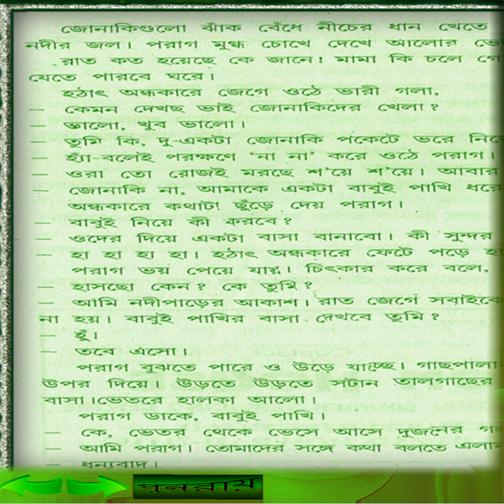 জোনাকিগুলো ঝাঁক বেঁধে নীচের ধান খেতে
নদীর জল। পরাগ মুগ্ধ চোখে দেখে আলোর
রাত কত হয়েছে কে জানে! মামা কি চলে
যেতে পারবে ঘরে।
হঠাৎ অন্ধকারে জেগে ওঠে ভারী গলা,
— কেমন দেখছ ভাই জোনাকিদের খেলা?
— ভালো, খুব ভালো।
— তুমি কি, দু-একটা জোনাকি পকেটে ভরে
— হ্যাঁ-বলেই পরক্ষণে 'না না' করে ওঠে পরাগ।
— ওরা তো রোজই মরছে শ'য়ে শ'য়ে। আবার
— জোনাকি না, আমাকে একটা বাবুই পাখি ধরে
অন্ধকারে কথাটা ছুঁড়ে দেয় পরাগ।
— বাবুই নিয়ে কী করবে?
— ওদের দিয়ে একটা বাসা বানাবো। কী সুন্দর
— হা হা হা হা। হঠাৎ অন্ধকারে ফেটে পড়ে
পরাগ ভয় পেয়ে যায়। চিৎকার করে বলে,
— হাসছো কেন? কে তুমি?
— আমি নদীপাড়ের আকাশ। রাত জেগে
না হয়। বাবুই পাখির বাসা দেখবে তুমি?
— হুঁ।
— তবে এসো।
পরাগ বুঝতে পারে ও উড়ে যাচ্ছে। গাছপালা
উপর দিয়ে। উড়তে উড়তে সটান তালগাছের
বাসা। ভেতরে হালকা আলো।
পরাগ ডাকে, বাবুই পাখি।
— কে, ভেতর থেকে ভেসে আসে দুজনের
— আমি পরাগ। তোমাদের সঙ্গে কথা বলতে
— ধন্যবাদ।
পুনরায়